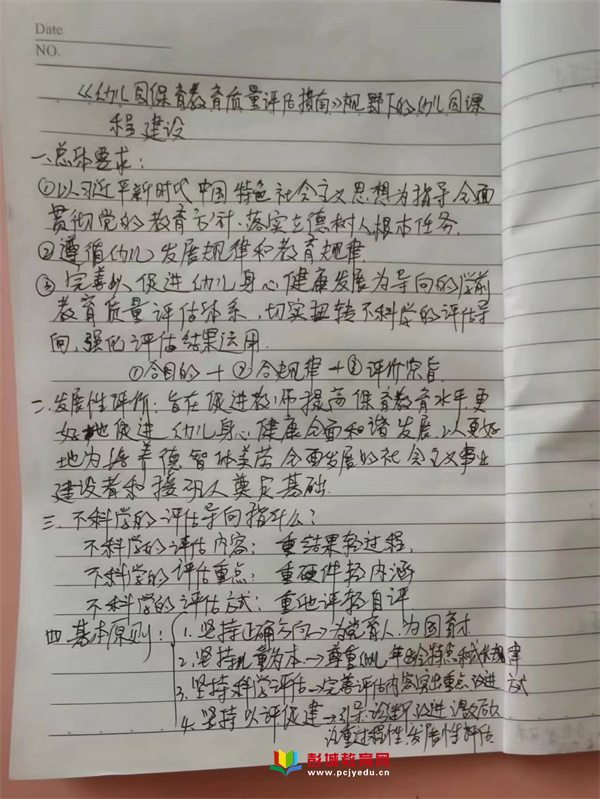 Date
NO.
《幼儿园保育教育质量评估指南》视野下的幼儿园课
程建设
一、总体要求：
①以习近平新时代中国特色社会主义思想为指导,全面
贯彻党的教育方针,落实立德树人根本任务.
②遵循幼儿发展规律和教育规律.
③完善以促进幼儿身心健康发展为导向的学前
教育质量评估体系,切实扭转不科学的评估导
向,强化评估结果运用.
①合目的 + ②合规律 + ③评价宗旨.
二.发展性评价：旨在促进教师提高保育教育水平,更
好地促进幼儿身心健康全面和谐发展,以更好
地为培养德智体美劳全面发展的社会主义事业
建设者和接班人奠定基础.
三.不科学的评估导向指什么?
不科学的评估内容：重结果轻过程,
不科学的评估重点：重硬件轻内涵
不科学的评估方式：重他评轻自评
四 基本原则：1.坚持正确方向→为党育人.为国育才.
2.坚持儿童为本→尊重幼儿年龄特点和成长规律
3.坚持科学评估→完善评估内容,突出重点,改进方式
4.坚持以评促建→引导,诊断,改进,激励
注重过程性,发展性评估
彭城教育网
www.pcjyedu.cn